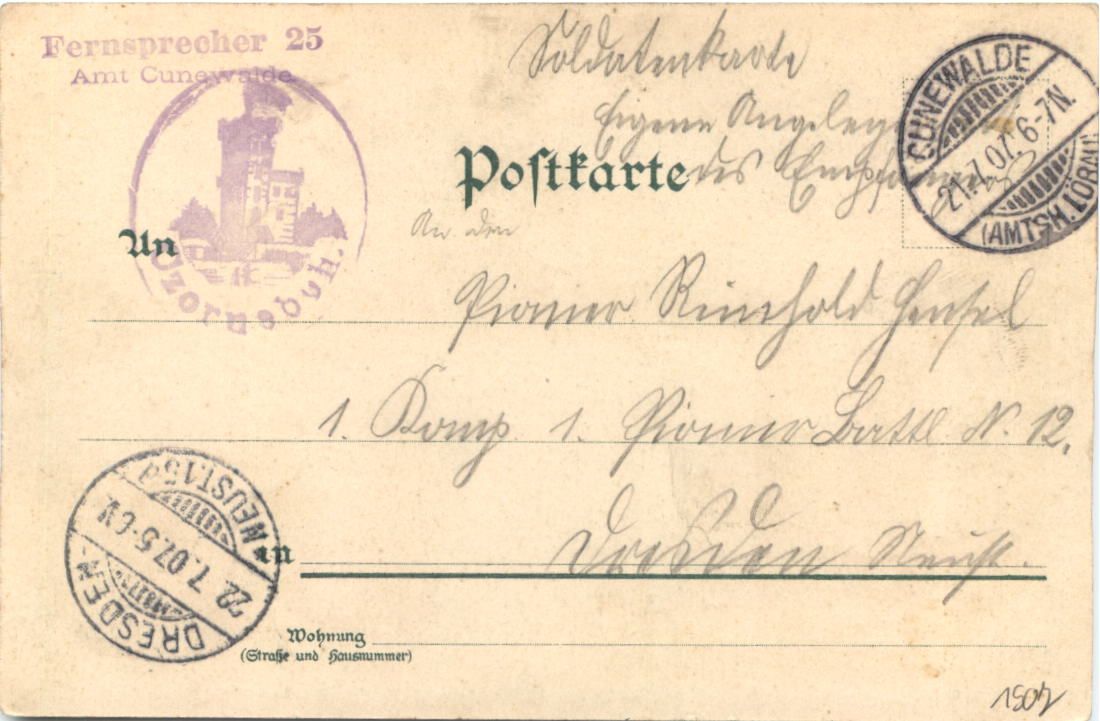 Fernsprecher 25
Amt Cunewalde
Czorneboh.
Soldatenkarte
Eigene Angelegenheit
des Empfängers
CUNEWALDE
21.7.07. 6-7N.
(AMTSH. LÖBAU)
Postkarte
An
An den
Pionier Reinhold Hensel
1. Komp. 1. Pionier Battl N. 12.
in
Dresden Neust.
DRESDEN-
22.7.07. 5-6V.
NEUST. 15d
Wohnung
(Straße und Hausnummer)
1907